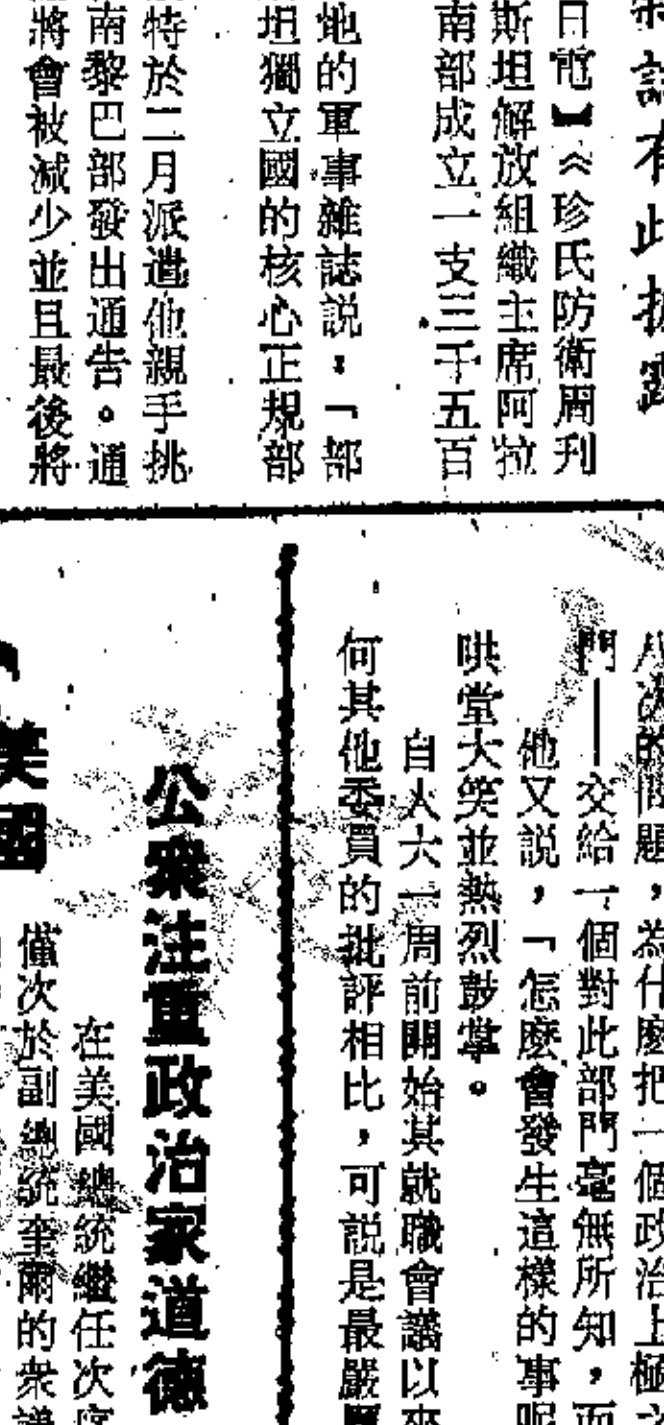 有此披露
日電】《珍氏防衛周刊
斯坦解放組織主席阿拉
南部成立一支三千五百
地的軍事雜誌説，「部
坦獨立國的核心正規部
特於二月派遣他親手挑
南黎巴部發出通告。通
將會被減少並且最後將
的問題，為什麼把一個政治上極
門——交給一個對此部門毫無所知，而
他又説，「怎麼會發生這樣的事呢
哄堂大笑並熱烈鼓掌。
自人大一周前開始其就職會議以來
何其他委員的批評相比，可説是最嚴厲
公衆注重政治家道德
在美國總統繼任次序
僅次於副總統奎爾的衆議
美國